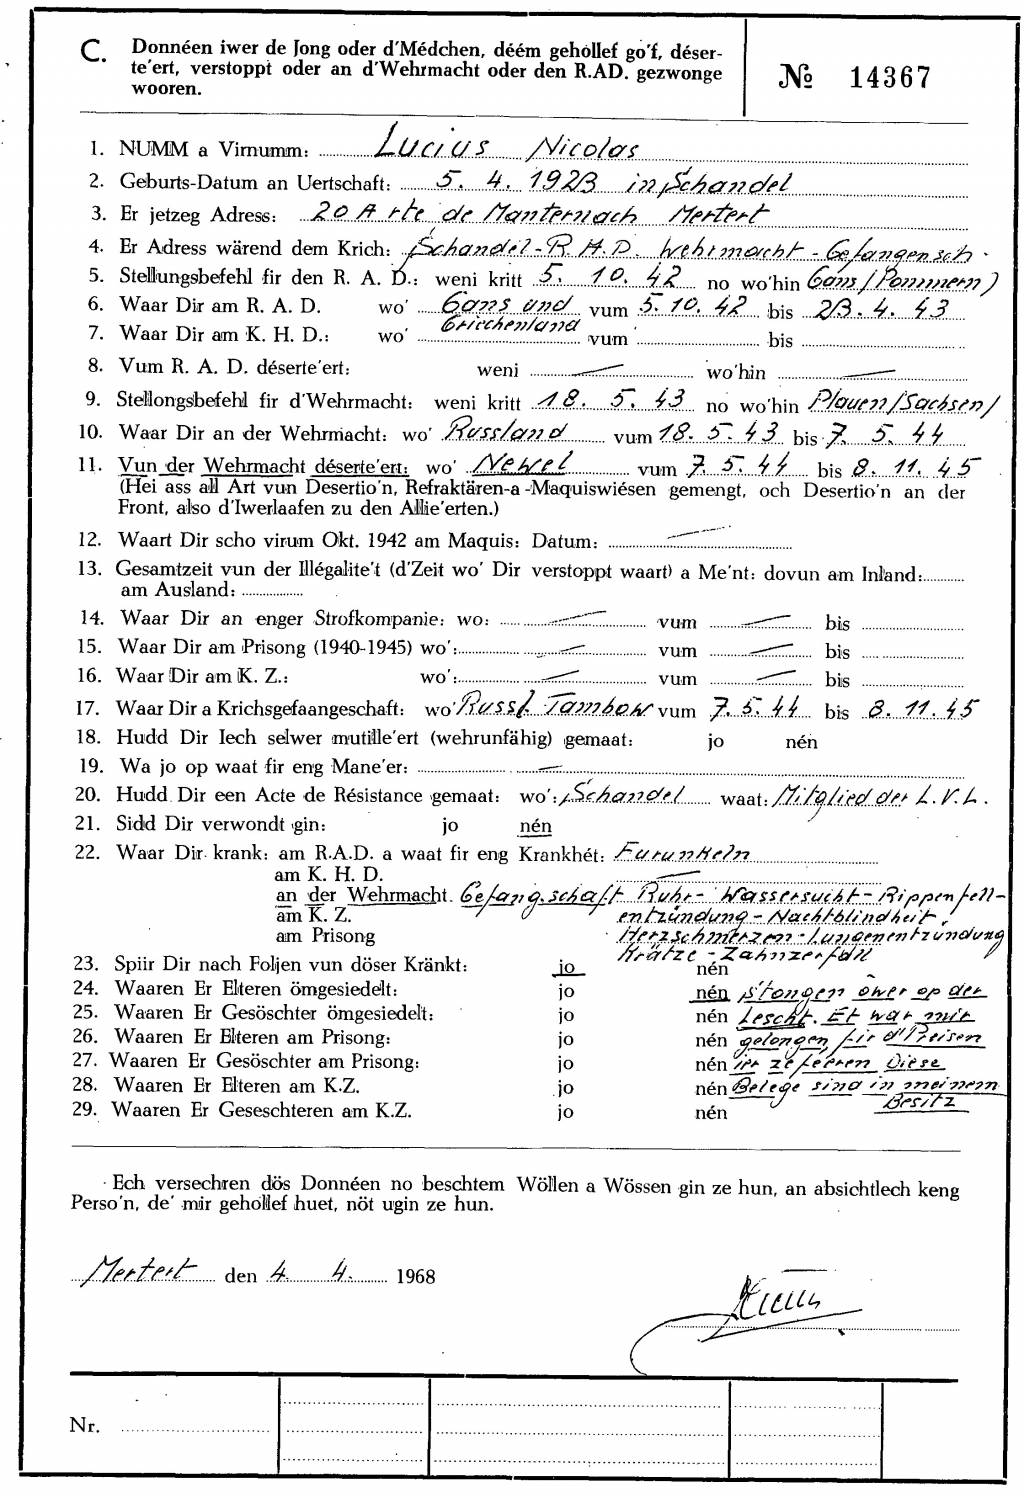 C. Donnéen iwer de Jong oder d'Médchen, déém gehöllef go'f, déser-
te'ert, verstoppt oder an d'Wehrmacht oder den R.AD. gezwonge
wooren.
№ 14367
1. NUMM a Virnumm: Lucius Nicolas
2. Geburts-Datum an Uertschaft: 5. 4. 1923 in Schandel
3. Er jetzeg Adress: 20 A rte de Manternach Mertert
4. Er Adress wärend dem Krich: Schandel - R.A.D. Wehrmacht - Gefangensch.
5. Stellungsbefehl fir den R. A. D.: weni kritt 5. 10. 42 no wo'hin Gans (Pommern)
6. Waar Dir am R. A. D. wo' Gans und vum 5.10. 42 bis 23. 4. 43
Griechenland
7. Waar Dir am K. H. D.: wo' vum bis
8. Vum R. A. D. déserte'ert: weni — wo'hin —
9. Stellongsbefehl fir d'Wehrmacht: weni kritt 18. 5. 43 no wo'hin Plauen/Sachsen/
10. Waar Dir an der Wehrmacht: wo' Russland vum 18. 5. 43 bis 7. 5. 44
11. Vun der Wehrmacht déserte'ert: wo' Newel vum 7. 5. 44 bis 8. 11. 45
(Hei ass all Art vun Desertio'n, Refraktären-a-Maquiswiésen gemengt, och Desertio'n an der
Front, also d'Iwerlaafen zu den Allie'erten.)
12. Waart Dir scho virum Okt. 1942 am Maquis: Datum: —
13. Gesamtzeit vun der Illégalite't (d'Zeit wo' Dir verstoppt waart) a Me'nt: dovun am Inland:
am Ausland:
14. Waar Dir an enger Strofkompanie: wo: — vum — bis
15. Waar Dir am Prisong (1940-1945) wo': — vum — bis
16. Waar Dir am K. Z.: wo': — vum — bis
17. Waar Dir a Krichsgefaangeschaft: wo' Russl. Tambow vum 7. 5. 44 bis 8. 11. 45
18. Hudd Dir Iech selwer mutille'ert (wehrunfähig) gemaat: jo nén
19. Wa jo op waat fir eng Mane'er: —
20. Hudd Dir een Acte de Résistance gemaat: wo': Schandel waat: Mitglied der L.V.L.
21. Sidd Dir verwondt gin: jo nén
22. Waar Dir krank: am R.A.D. a waat fir eng Krankhét: Furunkeln
am K. H. D. —
an der Wehrmacht. Gefang.schaft Ruhr - Wassersucht - Rippenfell-
am K. Z. entzündung - Nachtblindheit,
am Prisong Herzschmerzen - Lungenentzündung
Krätze - Zahnzerfall
23. Spiir Dir nach Foljen vun döser Kränkt: jo nén
24. Waaren Er Elteren ömgesiedelt: jo nén stongen ower op der
25. Waaren Er Gesöschter ömgesiedelt: jo nén Lescht. Et war mir
26. Waaren Er Elteren am Prisong: jo nén gelongen, fir d'Preisen
27. Waaren Er Gesöschter am Prisong: jo nén irr ze feeren Diese
28. Waaren Er Elteren am K.Z. jo nén Belege sind in meinem
29. Waaren Er Geseschteren am K.Z. jo nén Besitz
Ech versechren dös Donnéen no beschtem Wöllen a Wössen gin ze hun, an absichtlech keng
Perso'n, de' mir gehollef huet, nöt ugin ze hun.
Mertert den 4. 4. 1968
Nr.